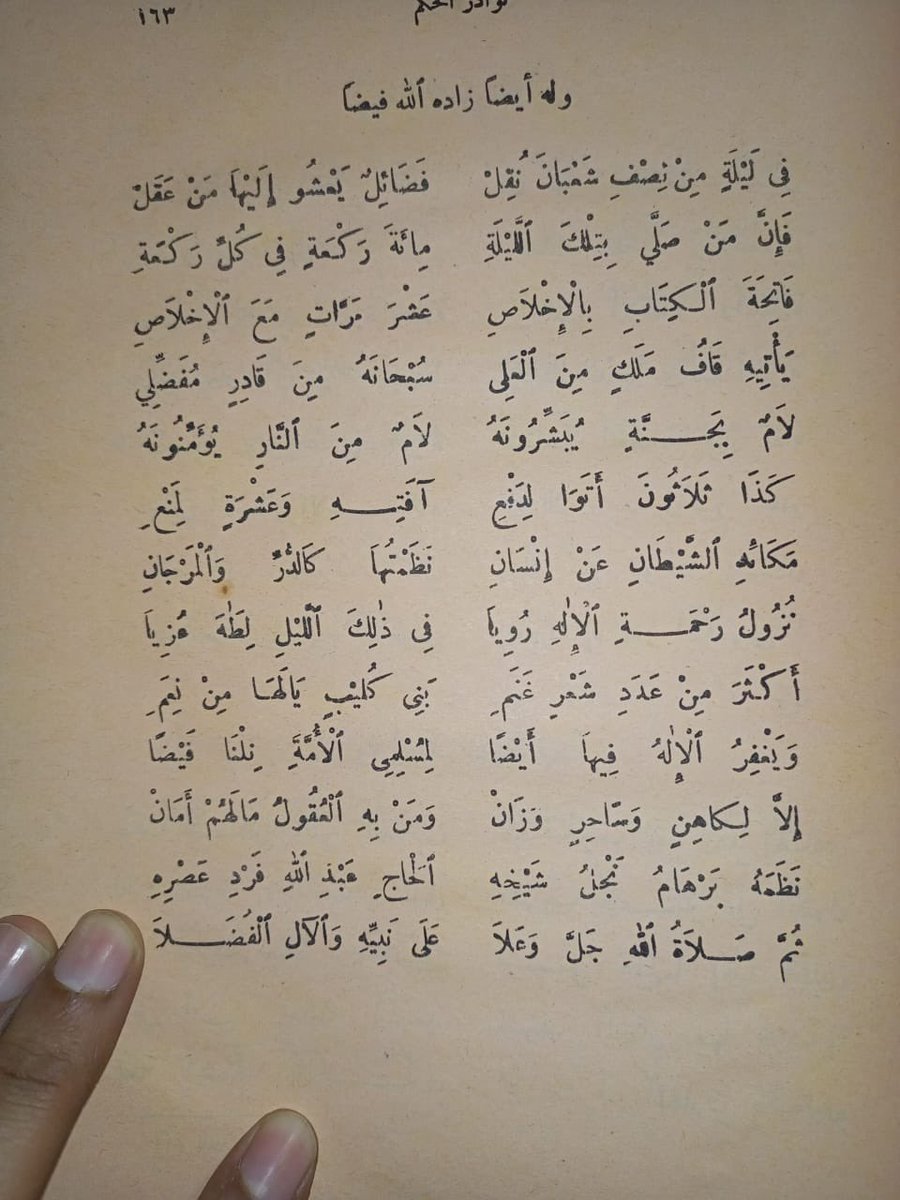 نوادر الحكم ١٦٣
وله أيضاً زاده ٱلله فيضاً
فِي لَيْلَةٍ مِنْ نِصْفِ شَعْبَانَ نُقِلْ فَضَائِلٌ يَعْشُو إِلَيْهَا مَنْ عَقَلْ
فَإِنَّ مَنْ صَلَّي بِتِلْكَ ٱللَّيْلَةِ مِائَةَ رَكْعَةٍ فِي كُلِّ رَكْعَةِ
فَاتِحَةَ ٱلْكِتَابِ بِالْإِخْلَاصِ عَشْرَ مَرَّاتٍ مَعَ ٱلْإِخْلَاصِ
يَأْتِيهِ قَافُ مَلَكٍ مِنَ ٱلْعَلِى سُبْحَانَهُ مِنَ قَادِرٍ مُفَضِّلِي
لَامٌ بِجَنَّةٍ يُبَشِّرُونَهُ لَامٌ مِنَ ٱلنَّارِ يُؤَمِّنُونَهُ
كَذَا ثَلَاثُونَ أَتَوَا لِدَفْعِ آفَتِهِ وَعَشْرَةٍ لِمَنْعِ
مَكَائِهِ ٱلشَّيْطَانِ عَنْ إِنْسَانِ نَظَمْتُهَا كَالدُّرِّ وَٱلْمَرْجَانِ
نُزُولُ رَحْمَةِ ٱلْإِلٰهِ رُوِيَا فِي ذٰلِكَ ٱللَّيْلِ لِطٰهَ عُزِيَا
أَكْثَرَ مِنْ عَدَدِ شَعْرِ غَنَمِ بَنِي كُلَيْبٍ يَالَهَا مِنْ نِعَمِ
وَيَغْفِرُ ٱلْإِلٰهُ فِيهَا أَيْضًا لِمُسْلِمِى ٱلْأُمَّةِ نِلْنَا فَيْضًا
إِلاَّ لِكاهِنٍ وَسَّاحِرٍ وَزَانْ وَمَنْ بِهِ ٱلْعُقُولُ مَالَهُمْ أَمَانْ
نَظَمَهُ بَرْهَامُ نَجْلُ شَيْخِهِ ٱلْحَاجِ عَبْدِ ٱللهِ فَرْدِ عَصْرِهِ
ثُمَّ صَلَاةُ ٱللهِ جَلَّ وَعَلَا عَلَى نَبِيِّهِ وَٱلآلِ ٱلْفُضَلَا